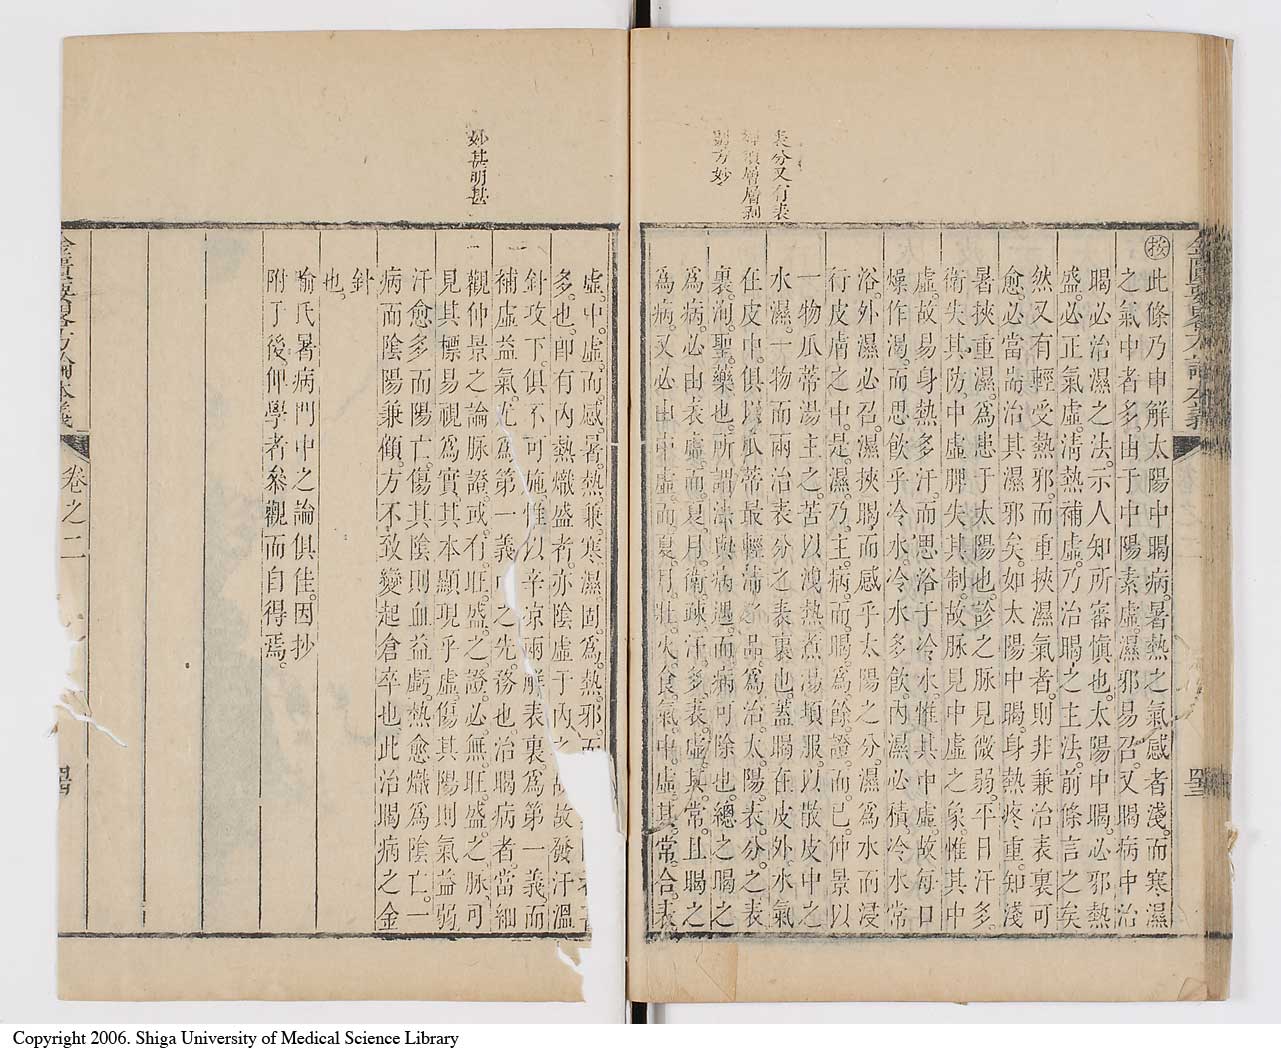 表分又有表
層層剥
方妙
按此條乃申解太陽中暍病。暑熱之氣感者淺。而寒濕
之氣中者多。由于中陽素虛。濕邪易召。又暍病中治
暍必治濕之法。示人知所審愼也。太陽中暍。必邪熱
盛。必正氣虛。淸熱補虛。乃治暍之主法。前條言之矣
然又有輕受熱邪。而重挾濕氣者。則非兼治表裏可
愈。必當耑治其濕邪矣。如太陽中暍。身熱疼重。知淺
暑挾重濕。爲患于太陽也。診之脉見微弱。平日汗多。
衛失其防。中虛脾失其制。故脉見中虛之象。惟其中
虛。故易身熱多汗。而思浴于冷水。惟其中虛。故每口
燥作渴。而思飲乎冷水。冷水多飲。内濕必積。冷水常
浴。外濕必召。濕挾暍。而感乎太陽之分。濕爲水而浸
行皮膚之中。是濕乃主病。而暍爲餘證而已。仲景以
一物瓜蒂湯主之。苦以洩熱。煮湯頓服。以散皮中之
水濕。一物而兩治表分之表裏也。蓋暍在皮外。水氣
在皮中。俱以瓜蒂最輕淸之品。爲治太陽表分之表
裏。洵聖藥也。所謂法與病遇。而病可除也。總之暍之
爲病。必由表虛。而夏月。衛疎汗多。表虛其常。且暍之
爲病。又必由中虛。而夏月。壯火食氣。中虛其常。合表
妙甚明甚
虛。中虛。而感暑熱。兼寒濕。固爲熱邪。而
多也。卽有内熱熾盛者。亦陰虛于内之故。故發汗溫
針攻下。俱不可施。惟以辛凉兩觧表裏爲第一義。而
補虛益氣。尤爲第一義中之先務也。治暍病者。當細
觀仲景之論脉證。或有旺盛之證。必無旺盛之脉。可
見其標易視爲實。其本顯現乎虛。傷其陽則氣益弱。
汗愈多而陽亡。傷其陰則血益虧。熱愈熾爲陰亡。一
病而陰陽兼傾。方不致變起倉卒也。此治暍病之金
針
也。
喻氏暑病門中之論俱佳。因抄
附于後。仰學者參觀而自得焉。
金匱要略方論本義
卷之二